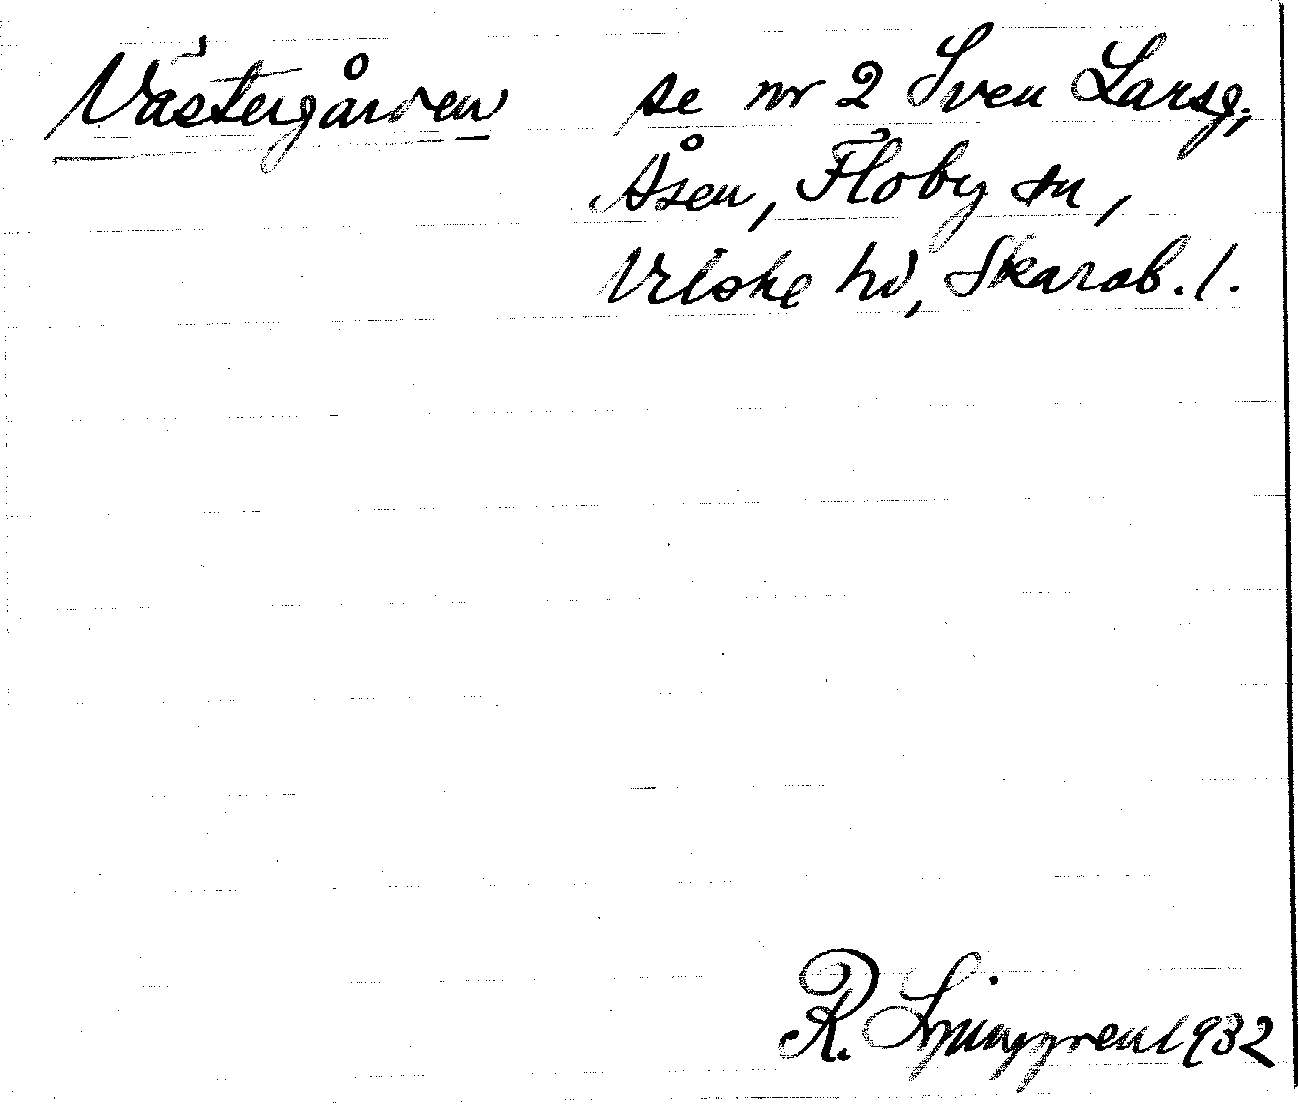 Västergården se nr 2 Sven Larsg,
Åsen, Floby sn,
Vilske hd, Skarab. l.
R. Ljunggren 1932